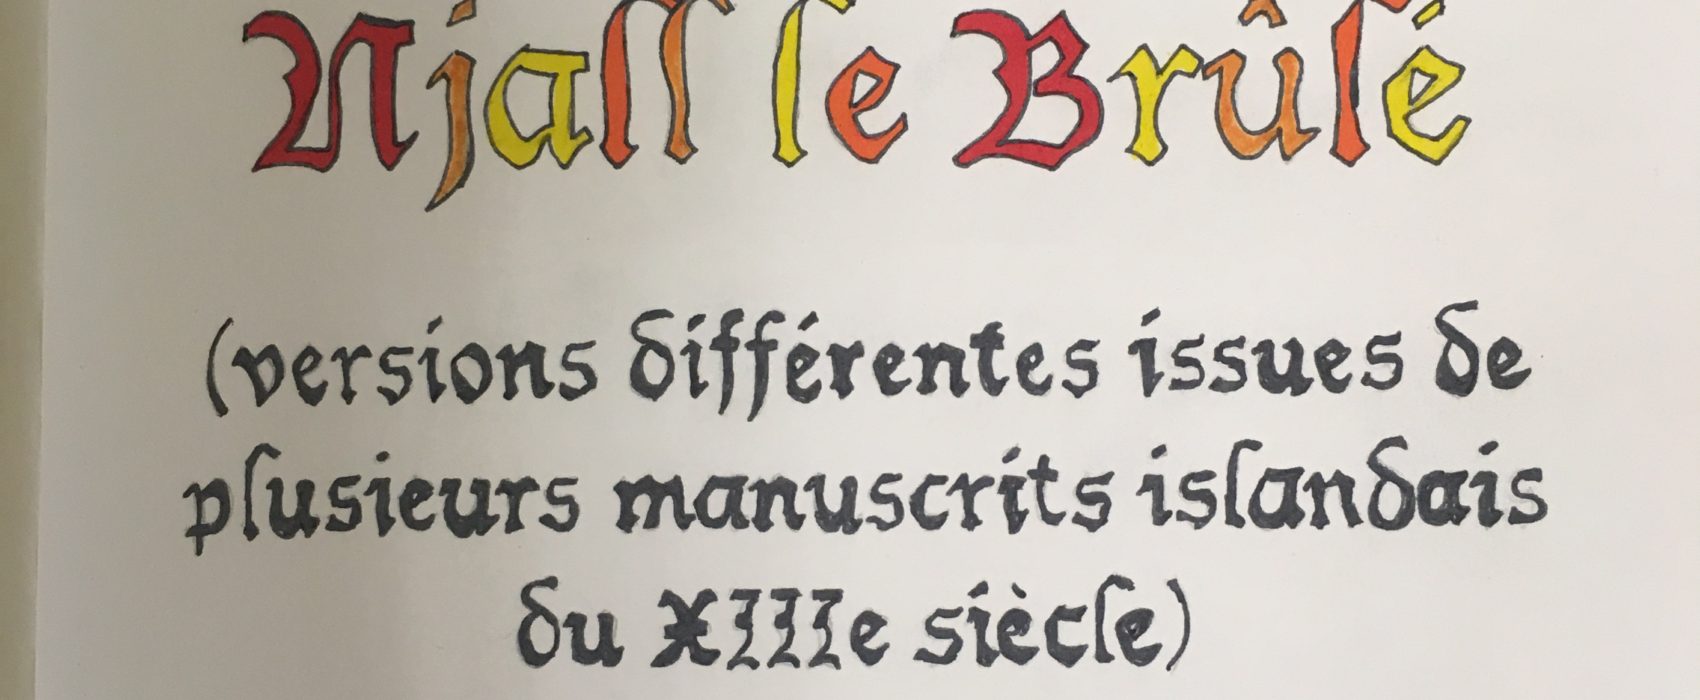 Njall le Brûlé
(versions différentes issues de
plusieurs manuscrits islandais
du XIIIe siècle)